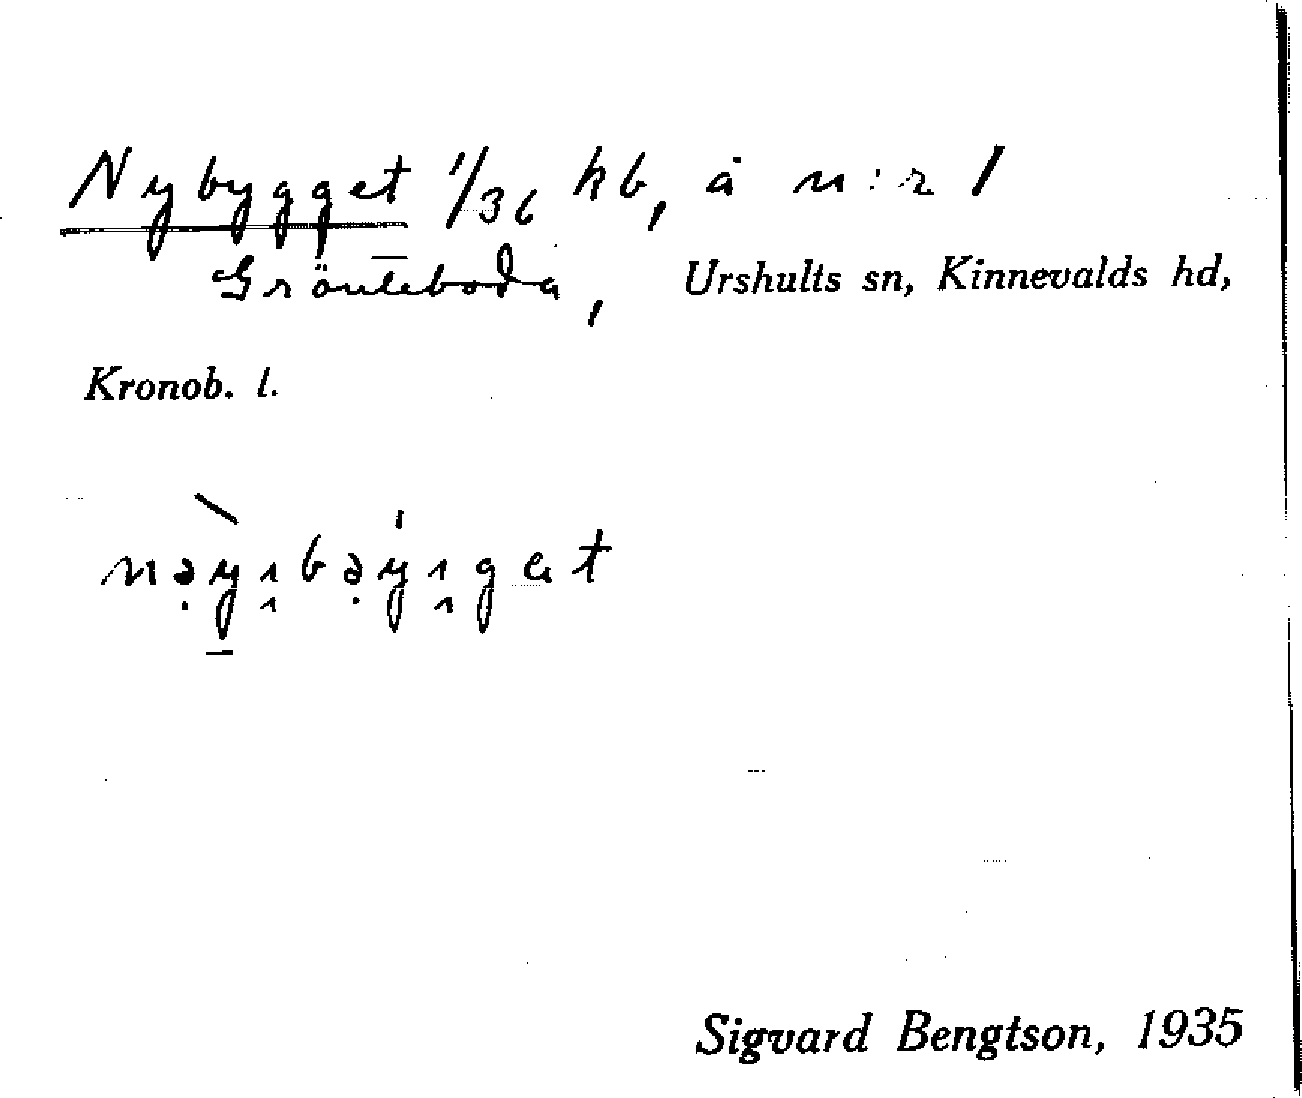 Nybygget 1/36 hb, å n:r 1
Grönteboda, Urshults sn, Kinnevalds hd,
Kronob. l.
Sigvard Bengtson, 1935